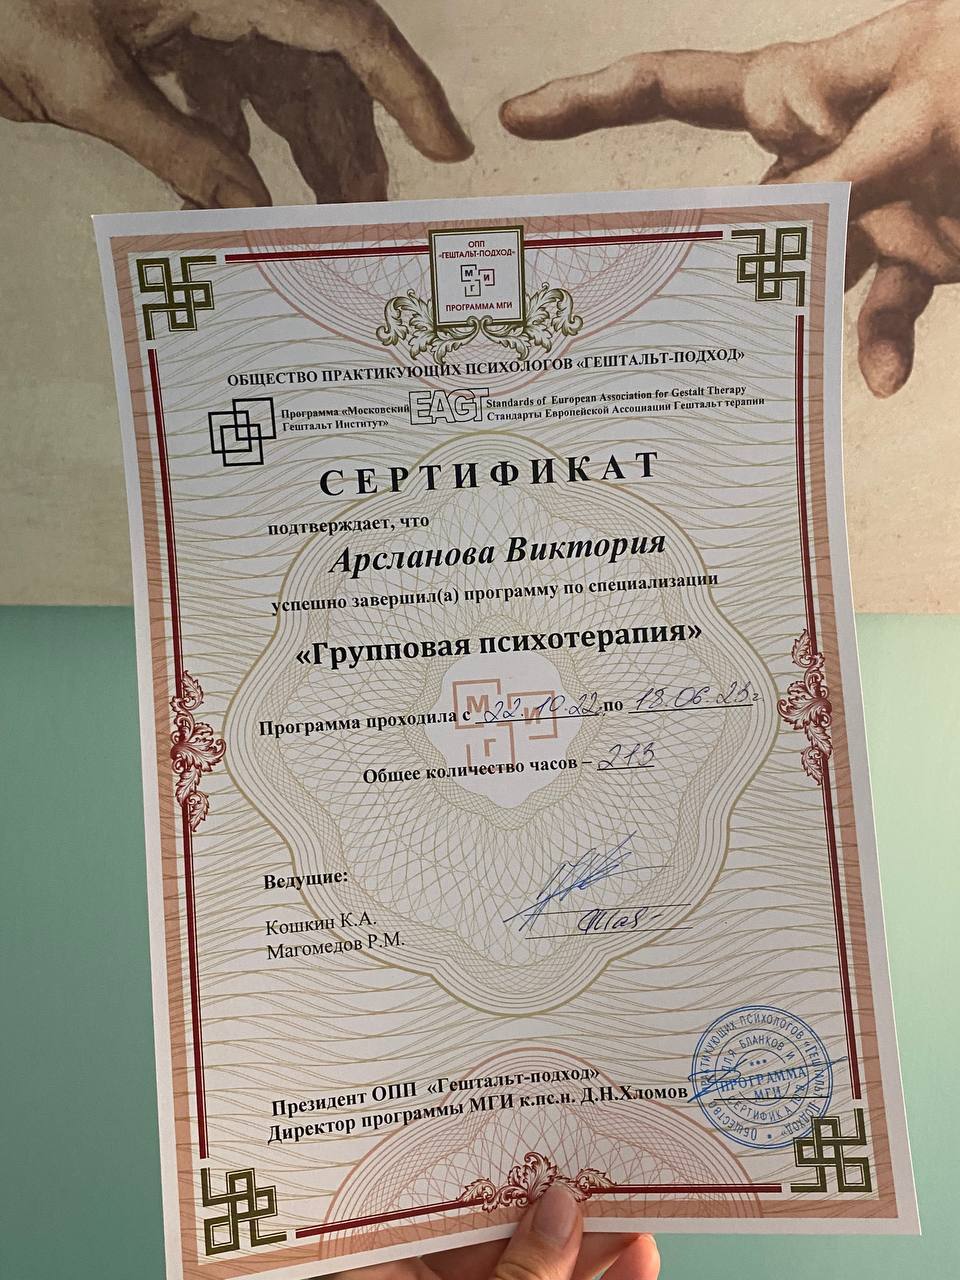 ОПП
«ГЕШТАЛЬТ-ПОДХОД»
М И
Г
ПРОГРАММА МГИ
ОБЩЕСТВО ПРАКТИКУЮЩИХ ПСИХОЛОГОВ «ГЕШТАЛЬТ-ПОДХОД»
Программа «Московский Гештальт Институт»
EAGT
Standards of European Association for Gestalt Therapy
Стандарты Европейской Ассоциации Гештальт терапии
СЕРТИФИКАТ
подтверждает, что
Арсланова Виктория
успешно завершил(а) программу по специализации
«Групповая психотерапия»
М И
Г
Программа проходила с 22.10.22 по 18.06.23г.
Общее количество часов – 213
Ведущие:
Кошкин К.А.
Магомедов Р.М.
Президент ОПП «Гештальт-подход»
Директор программы МГИ к.пс.н. Д.Н.Хломов
ОБЩЕСТВО ПРАКТИКУЮЩИХ ПСИХОЛОГОВ «ГЕШТАЛЬТ-ПОДХОД»
ДЛЯ БЛАНКОВ И
ПРОГРАММА
МГИ